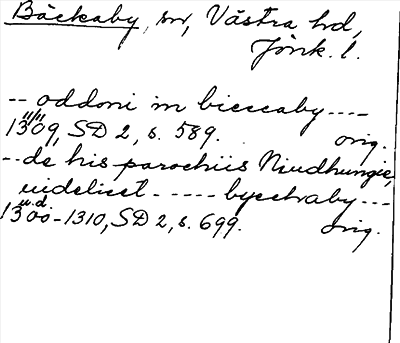 Bäckaby, sn, Västra hd,
Jönk. l.
-- oddoni in bieccaby ----
11/11
1309, SD 2, s. 589. orig.
-- de his parochiis Niudhungie,
uidelicet ----- byechaby ---
u.d.
1300-1310, SD 2, s. 699. orig.